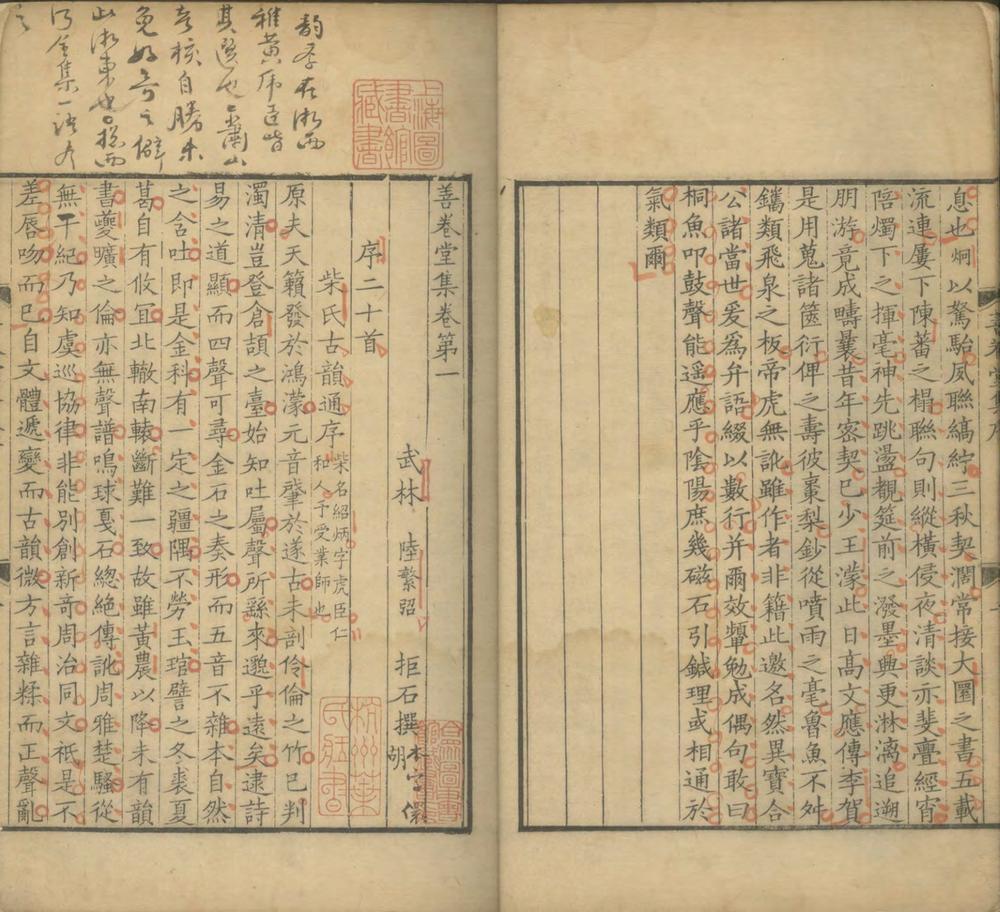 息也炯以駑駘夙聯縞紵三秋契濶常接大圍之書五載
流連屢下陳蕃之榻聯句則縱横侵夜清談亦斐亹經宵
陪燭下之揮毫神先跳盪覩筵前之潑墨興更淋漓追遡
朋游竟成疇曩昔年密契巳少王濛此日髙文應傳李賀
是用蒐諸箧衍俾之壽彼棗梨鈔從噴雨之毫魯魚不舛
鐫類飛泉之板帝虎無訛雖作者非籍此邀名然異寶合
公諸當世爰為弁語綴以數行并爾效顰勉成偶句敢曰
桐魚叩鼓聲能遥應乎陰陽庶幾磁石引鍼理或相通於
氣類爾
上海圖書館藏書
善卷堂集卷第一
武林 陸繁弨 拒石撰
序二十首
柴氏古韻通序 柴名紹炳字虎臣仁和人予受業師也
原夫天籟發於鴻濛元音肇於遂古未剖伶倫之竹巳判
濁清豈登倉頡之臺始知吐屬聲所繇來邈乎遠矣逮詩
易之道顯而四聲可尋金石之奏形而五音不雜本自然
之含吐即是金科有一定之疆隅不勞玉琯譬之冬裘夏
葛自有攸宜北轍南轅斷難一致故雖黃農以降未有韻
書夔曠之倫亦無聲譜鳴球戛石緫絶傳訛周雅楚騷從
無干紀乃知虞巡協律非能別創新奇周治同文祇是不
差唇吻而巳自文體遞變而古韻微方言雜糅而正聲亂